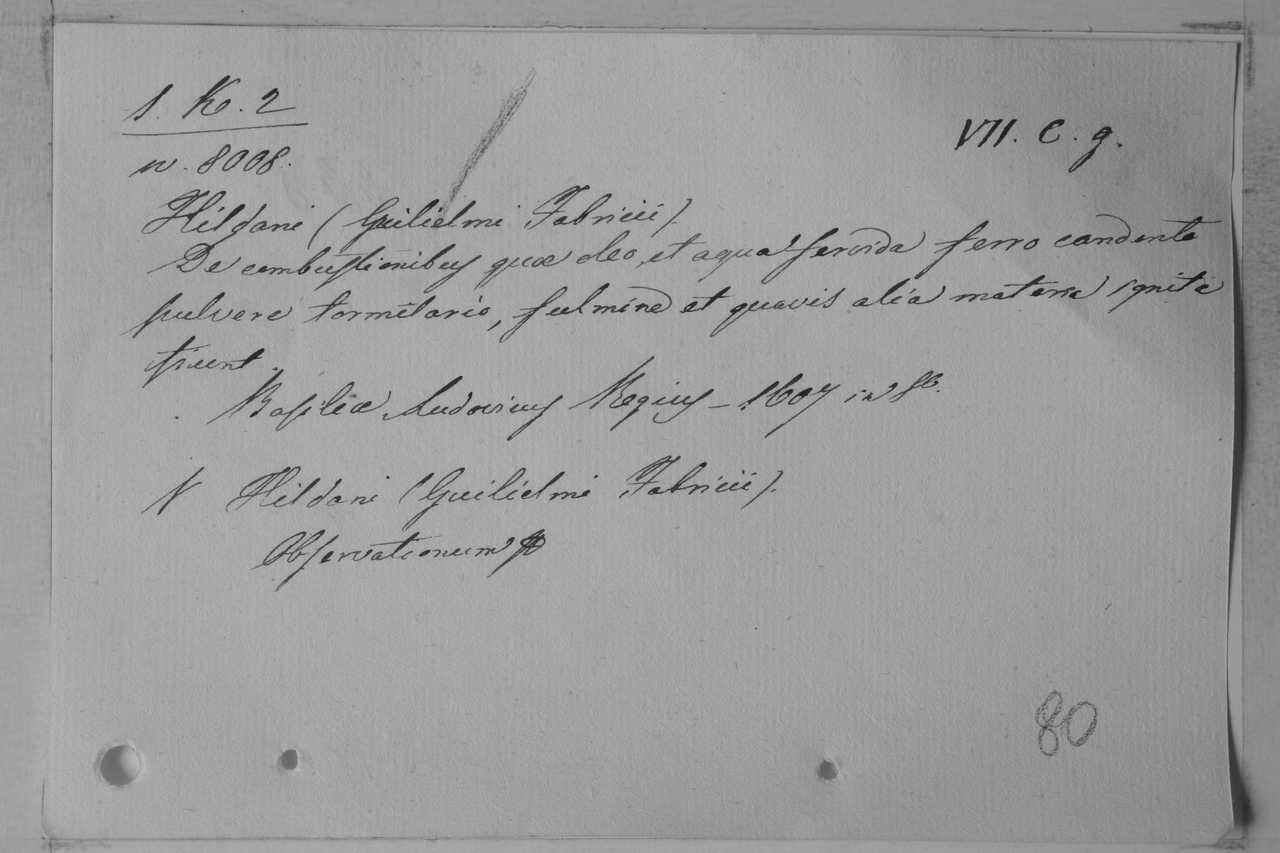 1. K. 2
VII. C. g.
n. 8008.
Hildani (Guilielmi Fabricii).
De combustionibus quae oleo, et aqua fervida ferro candente
pulvere tormētario, fulmine et quavis alia materia ignita
fiunt.
Basileae Ludovicus Regius – 1607 in 8º.
N Hildani (Guilielmi Fabricii).
Observationum
80